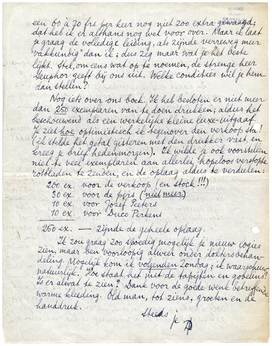 een 60 à 70 frs per keer nog niet zoo extra gewaagd;
dat heb ik er althans nog wel voor over. Maar ik laat
je graag de volledige leiding, als zijnde verreweg meer
"vakkundig" dan ik; dus zeg maar wat je het beste
lijkt. Stel, om eens wat op te noemen, de strenge heer
Seuphor geeft bij ons uit. Welke condities wil je hem
dan stellen?
Nog iets over ons boek. Ik heb besloten er niet meer
dan 250 exemplaren van te doen drukken; aldus het
beschouwend als een werkelijke kleine luxe-uitgaaf.
Ik ziet hoe optimistisch ik tegenover den verkoop sta!
(Ik stelde het getal gisteren met den drukker vast, en
kreeg je brief hedenmorgen). Ik wilde je ook voorstellen
niet te veel exemplaren aan allerlei hopeloos verrotte
rotbladen te zenden, en de oplaag aldus te verdeelen:
200 ex. voor de verkoop (en stock!!!)
30 ex. voor de pers (niet meer)
10 ex. voor Jozef Peeters
10 ex. voor Duco Perkens
250 ex. — zijnde de geheele oplaag.
Ik zou graag zoo spoedig mogelijk je nieuwe logies
zien, maar ben voorloopig alweer onder doktersbehan-
deling. Mogelijk kom ik volgenden Zondag; ik waarschuw
natuurlijk! Hoe staat het met de tapijten en gobelins?
Is er alvast te zien? Dank voor de goede wenk betreffende
warme kleeding. Old man, tot ziens, groeten en de
handdruk.
Steeds je